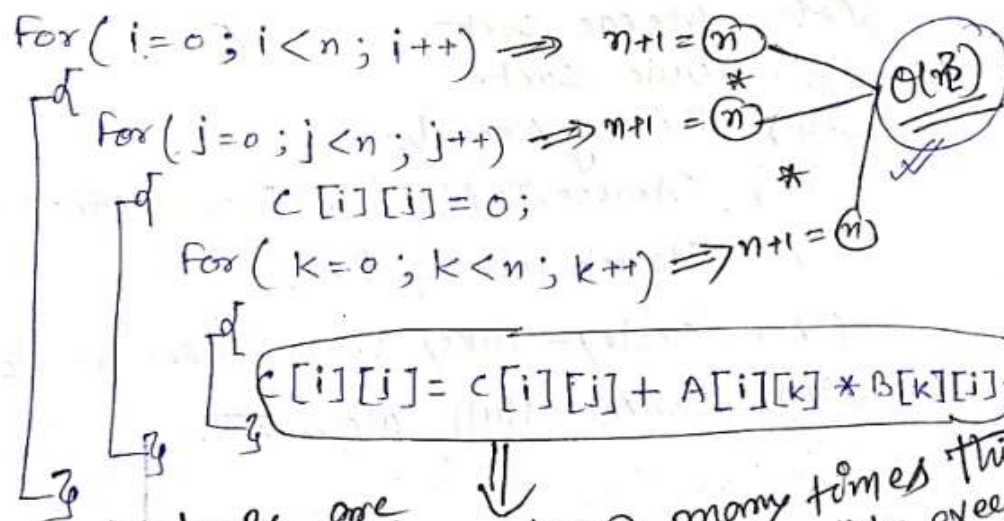 For ( i = 0 ; i < n ; i++ ) ⇒ n+1 = n
*
O(n³)
{
For ( j = 0 ; j < n ; j++ ) ⇒ n+1 = n
*
{ C [i][j] = 0 ;
For ( k = 0 ; k < n ; k++ ) ⇒ n+1 = n
{
C[i][j] = C[i][j] + A[i][k] * B[k][j]
}
}
}
are many times